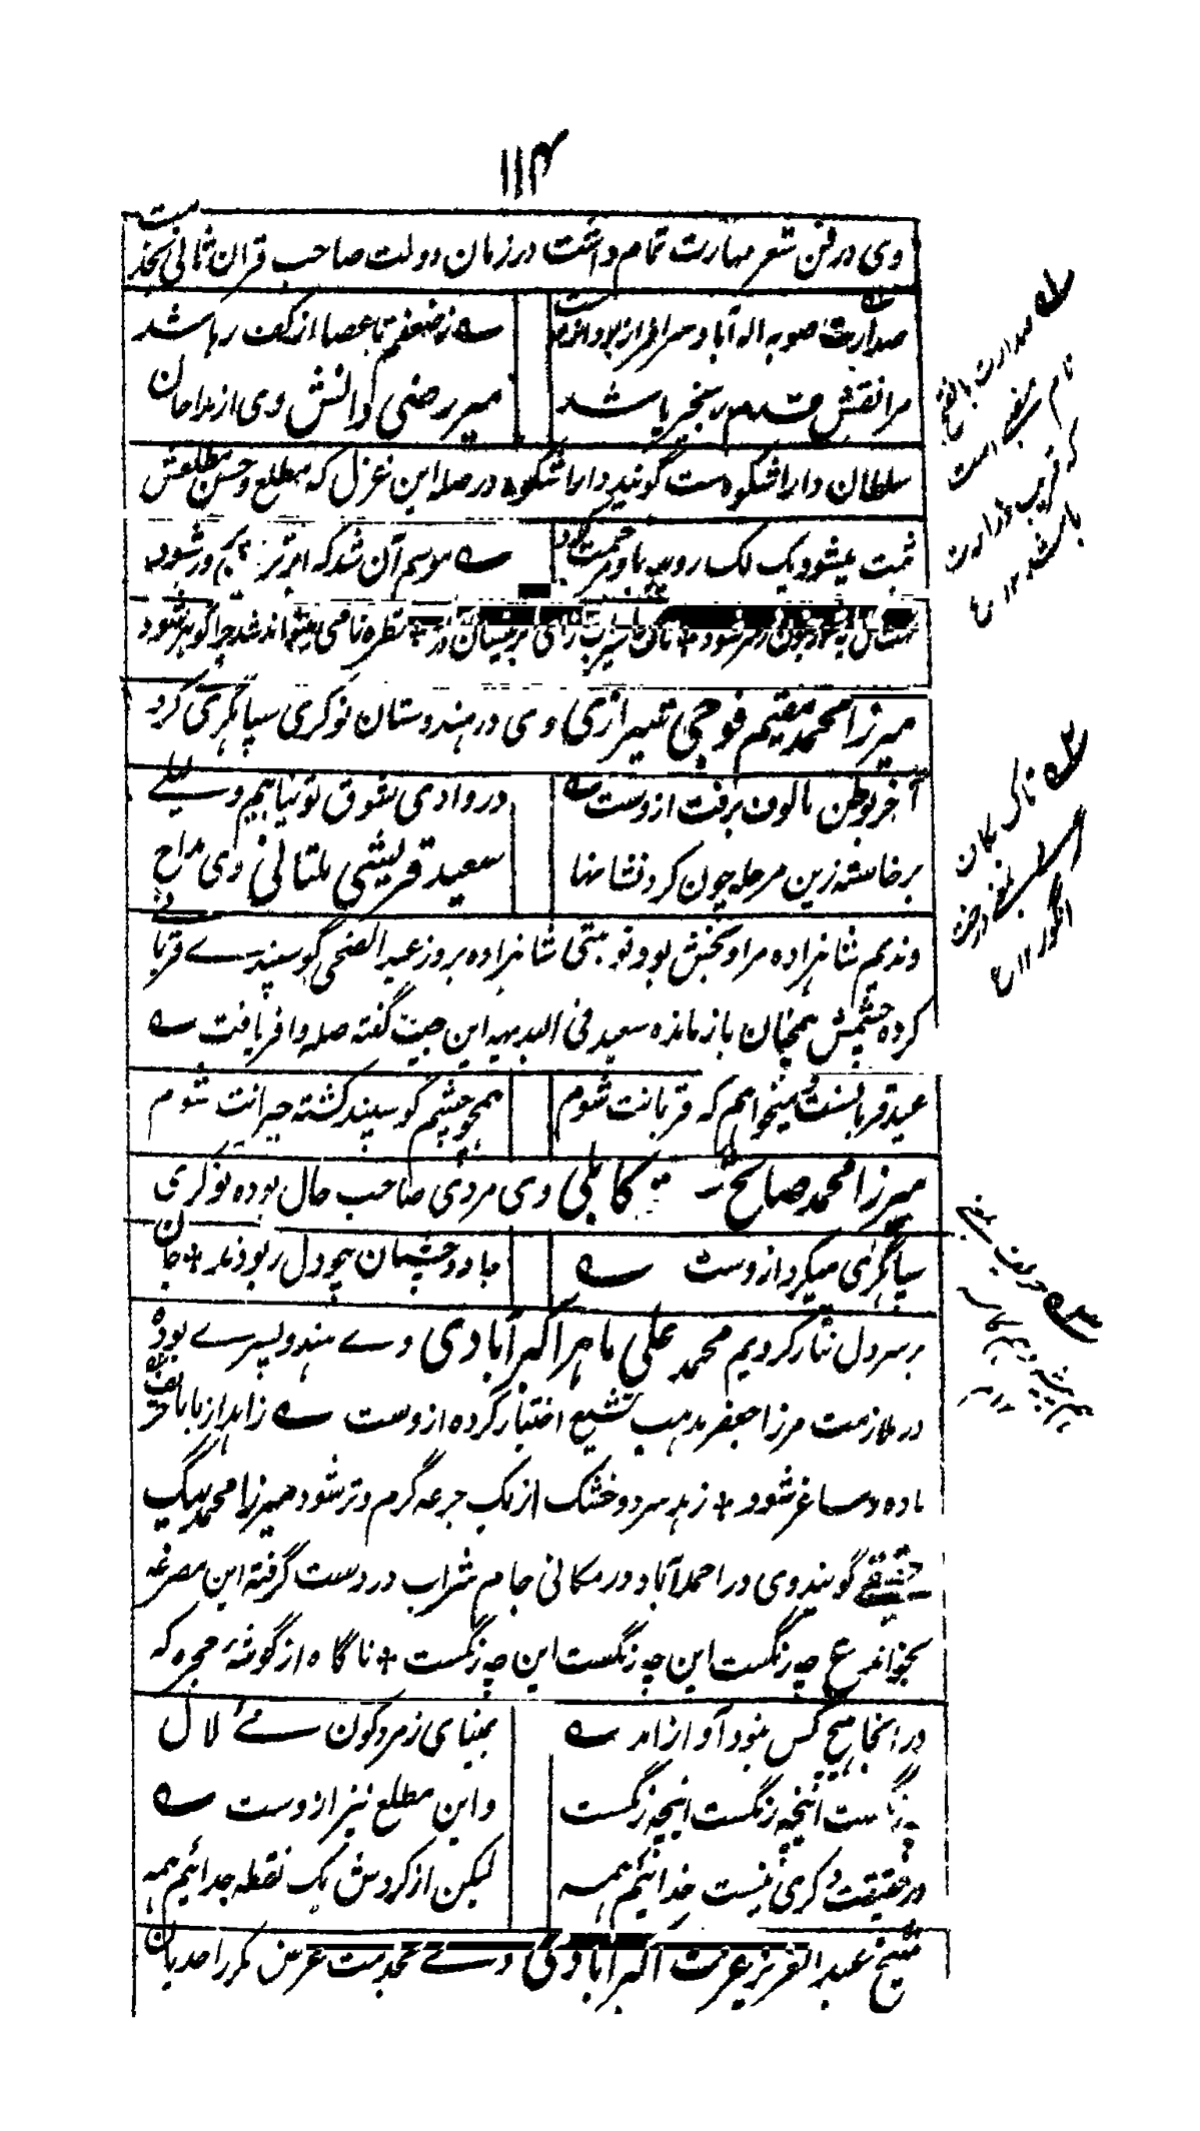 ۱۱۴
وی در فن شعر مهارت تمام داشت در زمان دولت صاحب قران ثانی بخدمت
صدارت صوبه اله آباد سرافراز بود ازوست
ے ز ضعفم تا عصا از کف رها شد
مرا نقش قدم زنجیر پا شد
میر رضی دانش وی از مداحان
سلطان داراشکوه ست گویند داراشکوه در صله این غزل که مطلع و حسن مطلعش
ثبت میشود یک لک روپیه باو مرحمت کرد
ے موسم آن شد که ابر تر چمن پرور شود
تاک را سیراب کن ای ابر نیسان در بهار + قطره تا می میتواند شد چرا گوهر شود
میرزا محمد مقیم فوجی شیرازی وی در هندوستان نوکری سپاهگری کرد
آخر بوطن مالوف برفت ازوست ے
در وادی شوق تو نیابیم دلیلے
برخاسته زین مرحله چون گرد نشانها
سعید قریشی ملتانی وی مداح
وندیم شاهزاده مراد بخش بود نوبتی شاهزاده بروز عید الضحی گوسپندے قربانے
کرده چشمش همچنان باز مانده سعید فی البدیهه این بیت گفته صله وافر یافت ے
عید قربانست میخواهم که قربانت شوم
همچو چشم گوسپند کشته حیرانت شوم
میرزا محمد صالح کابلی وی مردی صاحب حال بوده نوکری
سپاهگری میکرد ازوست ے
جادو چشمان چو دل ربودند + جان
بر سر دل نثار کردیم محمد علی ماهر اکبرآبادی وے هندو پسرے بوده
در ملازمت مرزا جعفر مذهب تشیع اختیار کرده ازوست ے زاهد از با ما حریف
باده و ساغر شود + زهد سرد و خشک از یک جرعه گرم و تر شود میرزا محمد بیگ
حقیقے گویند وی در احمدآباد در مکانی جام شراب در دست گرفته این مصرعه
بخواند ع چه رنگست این چه رنگست این چه رنگست + ناگاه از گوشه حجره که
در انجا هیچ کس نبود آواز امد ے
بمینای زمردگون مے لال
چه رنگست اینچه رنگست اینچه رنگست
و این مطلع نیز ازوست ے
در حقیقت دگری نیست خدائیم همه
لیکن از گردش یک نقطه جدائیم همه
شیخ عبدالعزیز عزت اکبرآبادی وے بخدمت عرض مکرر احدیان
۱ صدارت بالفتح
نام منصبی است
که قریب وزارت
باشد ۱۲ ع
۲ تاک بکاف
درخت
انگور ۱۲ ع
۳ حریف بمعنے
هم پیشه و هم کاسه